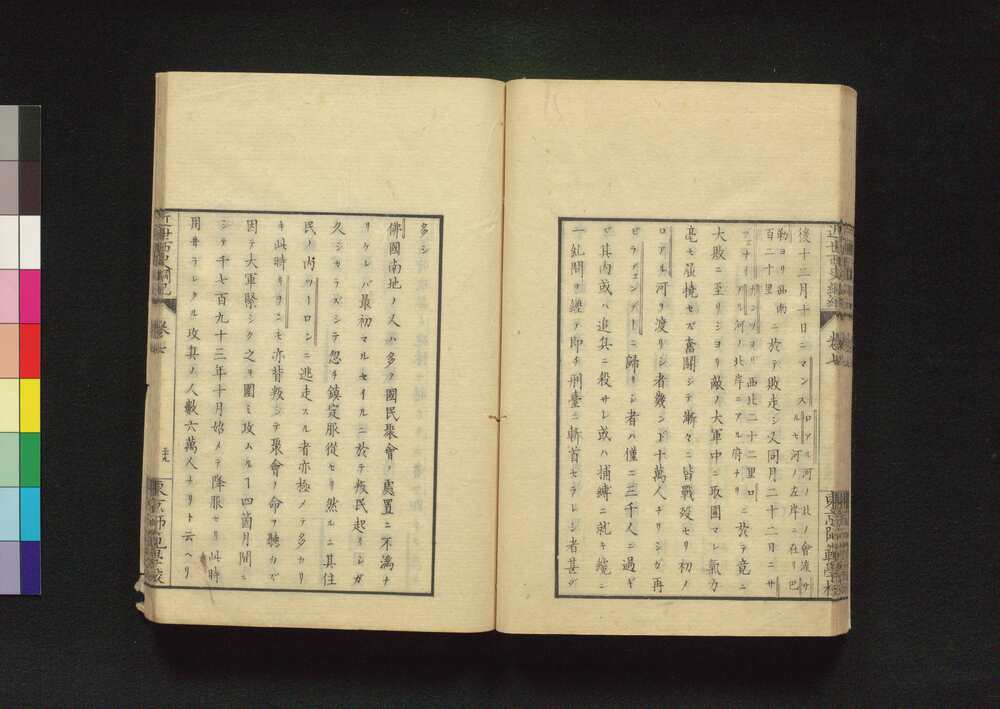 後十二月十日ニマンスルセ河ノ左岸ニ在リ巴
勒ヨリ西南
百二十里ニ於テ敗走シ又同月二十二日ニサ
大敗ニ至リシヨリ敵ノ大軍中ニ取圍マレ氣力
毫モ屈撓セズ奮鬪シテ漸々ニ皆戰歿セリ初メ
ロアル河ヲ渡リシ者幾ンド十萬人ナリシガ再
ビラアンデーニ歸リシ者ハ僅ニ三千人ニ過ギ
其内或ハ進兵ニ殺サレ或ハ捕縛ニ就キ纔ニ
一糺問ヲ經テ即チ刑臺ニ斬首セラレシ者甚ダ
近世西史綱紀
卷七
東京師範學校
多シ
佛國南地ノ人ハ多ク國民聚會ノ處置ニ不滿ナ
リケレバ最初マルセイルニ於テ叛民起リシガ
久シカラズシテ忽チ鎭定服從セリ然ルニ其住
民ノ内ツーロンニ逃走スル者亦極メテ多カリ
キ此時ツーロンモ亦背叛シテ聚會ノ命ヲ聽カズ
因テ大軍緊シク之ヲ圍ミ攻ムル﹁四箇月間ニ
シテ千七百九十三年十月始メテ降服セリ此時
用井ラレタル攻兵ノ人數六萬人ナリト云ヘリ
近世西史綱紀
卷七
東京師範學校